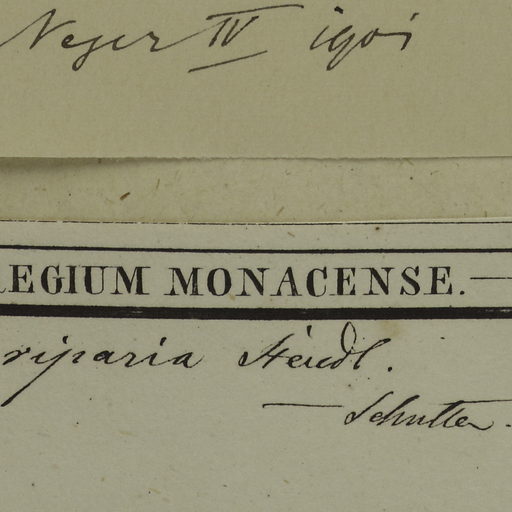 Neger IV 1901
REGIUM MONACENSE.
riparia Stendl.
Schutter.